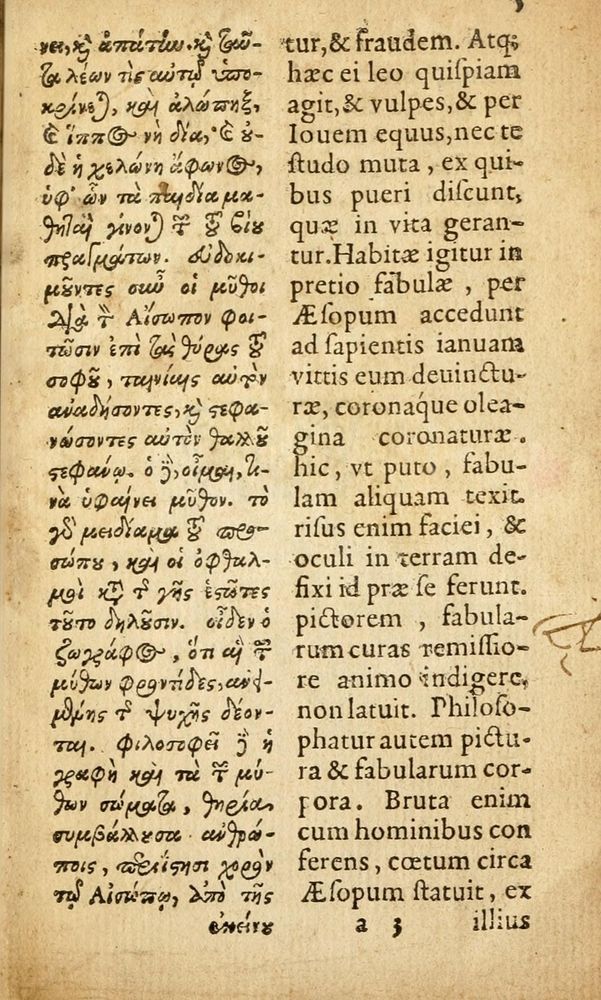 3
νει, καὶ ἀπάτην. καὶ ταῦ-
τα λέων τὶς αὐτῷ ὑπο-
κρίνεται, καὶ ἀλώπηξ,
καὶ ἵππος νὴ δία, καὶ οὐ-
δὲ ἡ χελώνη ἄφωνος,
ὑφ' ὧν τὰ παιδία μα-
θηταὶ γίνονται τῶν τοῦ βίου
πραγμάτων. εὐδοκι-
μοῦντες οὖν οἱ μῦθοι
διὰ τὸν Αἴσωπον φοι-
τῶσιν ἐπὶ τὰς θύρας τοῦ
σοφοῦ, ταινίαις αὐτὸν
ἀναδήσοντες, καὶ στεφα-
νώσοντες αὐτὸν θαλλοῦ
στεφάνῳ. ὁ δὲ, οἶμαι, τι-
νὰ ὑφαίνει μῦθον. τὸ
γὰρ μειδίαμα τοῦ προ-
σώπου, καὶ οἱ ὀφθαλ-
μοὶ κατὰ τῆς γῆς ἑστῶτες
τοῦτο δηλοῦσιν. οἶδεν ὁ
ζωγράφος, ὅτι αἱ τῶν
μύθων φροντίδες, ἀνει-
μένης τῆς ψυχῆς δέον-
ται. φιλοσοφεῖ δὲ ἡ
γραφὴ καὶ τὰ τῶν μύ-
θων σώματα, θηρία
συμβάλλουσα ἀνθρώ-
ποις, περιίστησι χορὸν
τῷ Αἰσώπῳ, ἀπὸ τῆς
ἐκείνου
tur, & fraudem. Atq;
hæc ei leo quiſpiam
agit, & vulpes, & per
Iouem equus, nec te
ſtudo muta, ex qui-
bus pueri diſcunt,
quæ in vita geran-
tur. Habitæ igitur in
pretio fabulæ, per
Æſopum accedunt
ad ſapientis ianuam
vittis eum deuinctu-
ræ, coronaque olea-
gina coronaturæ.
hic, vt puto, fabu-
lam aliquam texit.
riſus enim faciei, &
oculi in terram de-
fixi id præ ſe ferunt.
pictorem, fabula-
rum curas remiſſio-
re animo indigere,
non latuit. Philoſo-
phatur autem pictu-
ra & fabularum cor-
pora. Bruta enim
cum hominibus con
ferens, cœtum circa
Æſopum ſtatuit, ex
a 3 illius